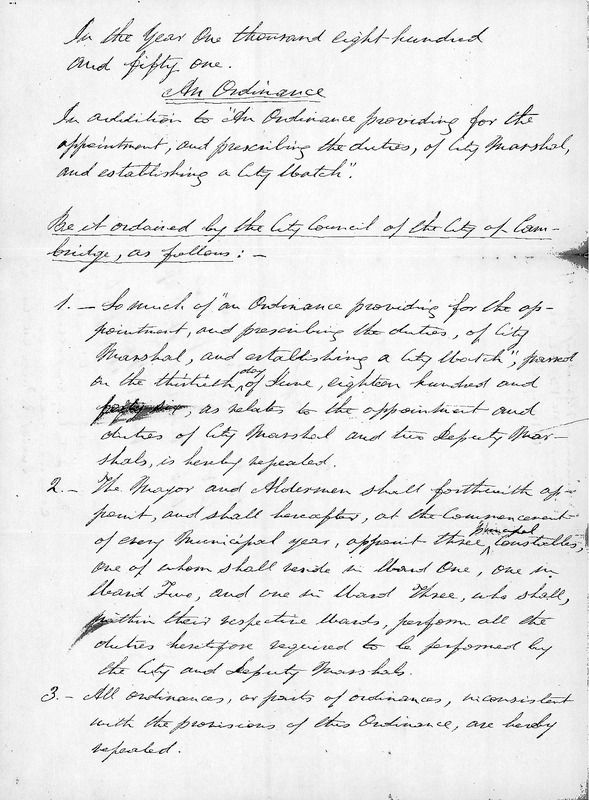 In the Year One thousand eight hundred
and fifty one.
An Ordinance
In addition to "An Ordinance providing for the
appointment, and prescribing the duties, of City Marshal,
and establishing a City Watch".
Be it ordained by the City Council of the City of Cam-
bridge, as follows: –
1. – So much of "an Ordinance providing for the ap-
pointment, and prescribing the duties, of City
Marshal, and establishing a City Watch", passed
on the thirtieth day of June, eighteen hundred and
forty six, as relates to the appointment and
duties of City Marshal and two Deputy Mar-
shals, is hereby repealed.
2. – The Mayor and Aldermen shall forthwith ap-
point, and shall hereafter, at the Commencement
of every Municipal year, appoint three principal Constables,
one of whom shall reside in Ward One, one in
Ward Two, and one in Ward Three, who shall,
within their respective Wards, perform all the
duties heretofore required to be performed by
the City and Deputy Marshals.
3. – All ordinances, or parts of ordinances, inconsistent
with the provisions of this Ordinance, are hereby
repealed.